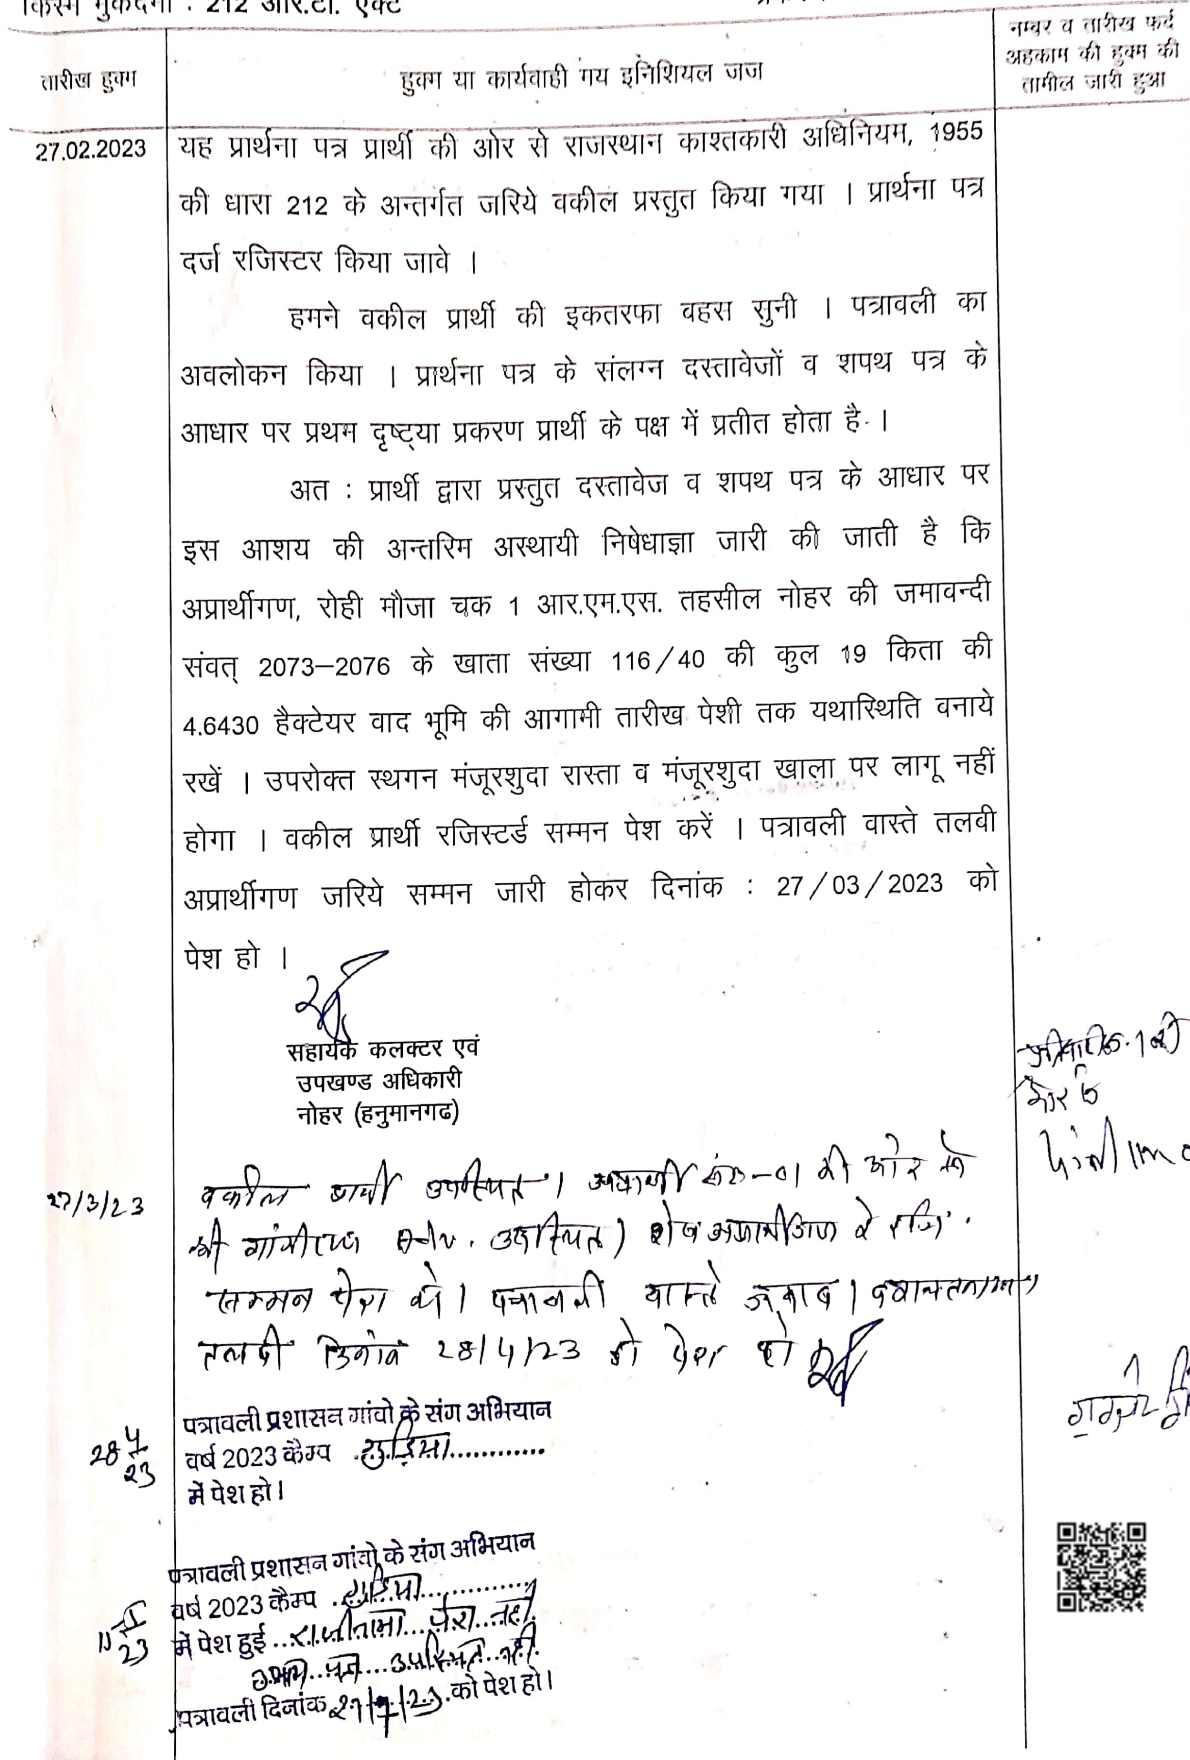 किस्म मुकदमा : 212 आर.टी. एक्ट
तारीख हुक्म
हुक्म या कार्यवाही मय इनिशियल जज
नम्बर व तारीख फर्द
अहकाम की हुक्म की
तामील जारी हुआ
27.02.2023
यह प्रार्थना पत्र प्रार्थी की ओर से राजस्थान काश्तकारी अधिनियम, 1955
की धारा 212 के अन्तर्गत जरिये वकील प्रस्तुत किया गया । प्रार्थना पत्र
दर्ज रजिस्टर किया जावे ।
हमने वकील प्रार्थी की इकतरफा वहस सुनी । पत्रावली का
अवलोकन किया । प्रार्थना पत्र के संलग्न दस्तावेजों व शपथ पत्र के
आधार पर प्रथम दृष्ट्या प्रकरण प्रार्थी के पक्ष में प्रतीत होता है ।
अत : प्रार्थी द्वारा प्रस्तुत दस्तावेज व शपथ पत्र के आधार पर
इस आशय की अन्तरिम अस्थायी निषेधाज्ञा जारी की जाती है कि
अप्रार्थीगण, रोही मौजा चक 1 आर.एम.एस. तहसील नोहर की जमावन्दी
संवत् 2073–2076 के खाता संख्या 116/40 की कुल 19 किता की
4.6430 हैक्टेयर वाद भूमि की आगामी तारीख पेशी तक यथास्थिति वनाये
रखें । उपरोक्त स्थगन मंजूरशुदा रास्ता व मंजूरशुदा खाला पर लागू नहीं
होगा । वकील प्रार्थी रजिस्टर्ड सम्मन पेश करें । पत्रावली वास्ते तलबी
अप्रार्थीगण जरिये सम्मन जारी होकर दिनांक : 27/03/2023 को
पेश हो ।
सहायक कलक्टर एवं
उपखण्ड अधिकारी
नोहर (हनुमानगढ)
27/3/23
वकील प्रार्थी उपस्थित । अप्रार्थी सं०-01 की ओर से
श्री उपस्थित । शेष अप्रार्थीगण के रजि.
सम्मन पेश करे । पत्रावली वास्ते जवाब ।
तलबी दिनांक 28/4/23 को पेश हो
28 4/23
पत्रावली प्रशासन गांवो के संग अभियान
वर्ष 2023 कैम्प ............
में पेश हो ।
11 5/23
पत्रावली प्रशासन गांवो के संग अभियान
वर्ष 2023 कैम्प ............
में पेश हुई राजीनामा पेश नहीं
उभय पक्ष उपस्थित नहीं
पत्रावली दिनांक 27/7/23 को पेश हो ।